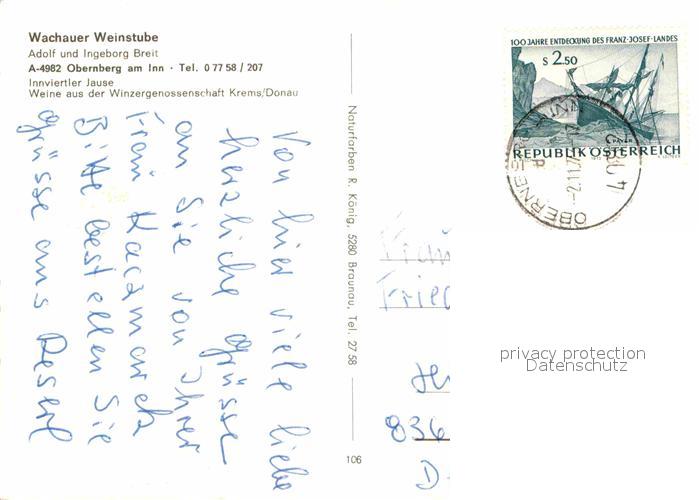 Wachauer Weinstube
Adolf und Ingeborg Breit
A-4982 Obernberg am Inn · Tel. 0 77 58 / 207
Innviertler Jause
Weine aus der Winzergenossenschaft Krems/Donau
Von hier viele liebe
herzliche Grüsse
an Sie von Ihrer
Frau
Bitte bestellen Sie
Grüsse ans
Naturfarben R. König, 5280 Braunau, Tel. 27 58
106
100 JAHRE ENTDECKUNG DES FRANZ-JOSEF-LANDES
S 2.50
REPUBLIK ÖSTERREICH
Frau
Fried
836
D-
privacy protection
Datenschutz